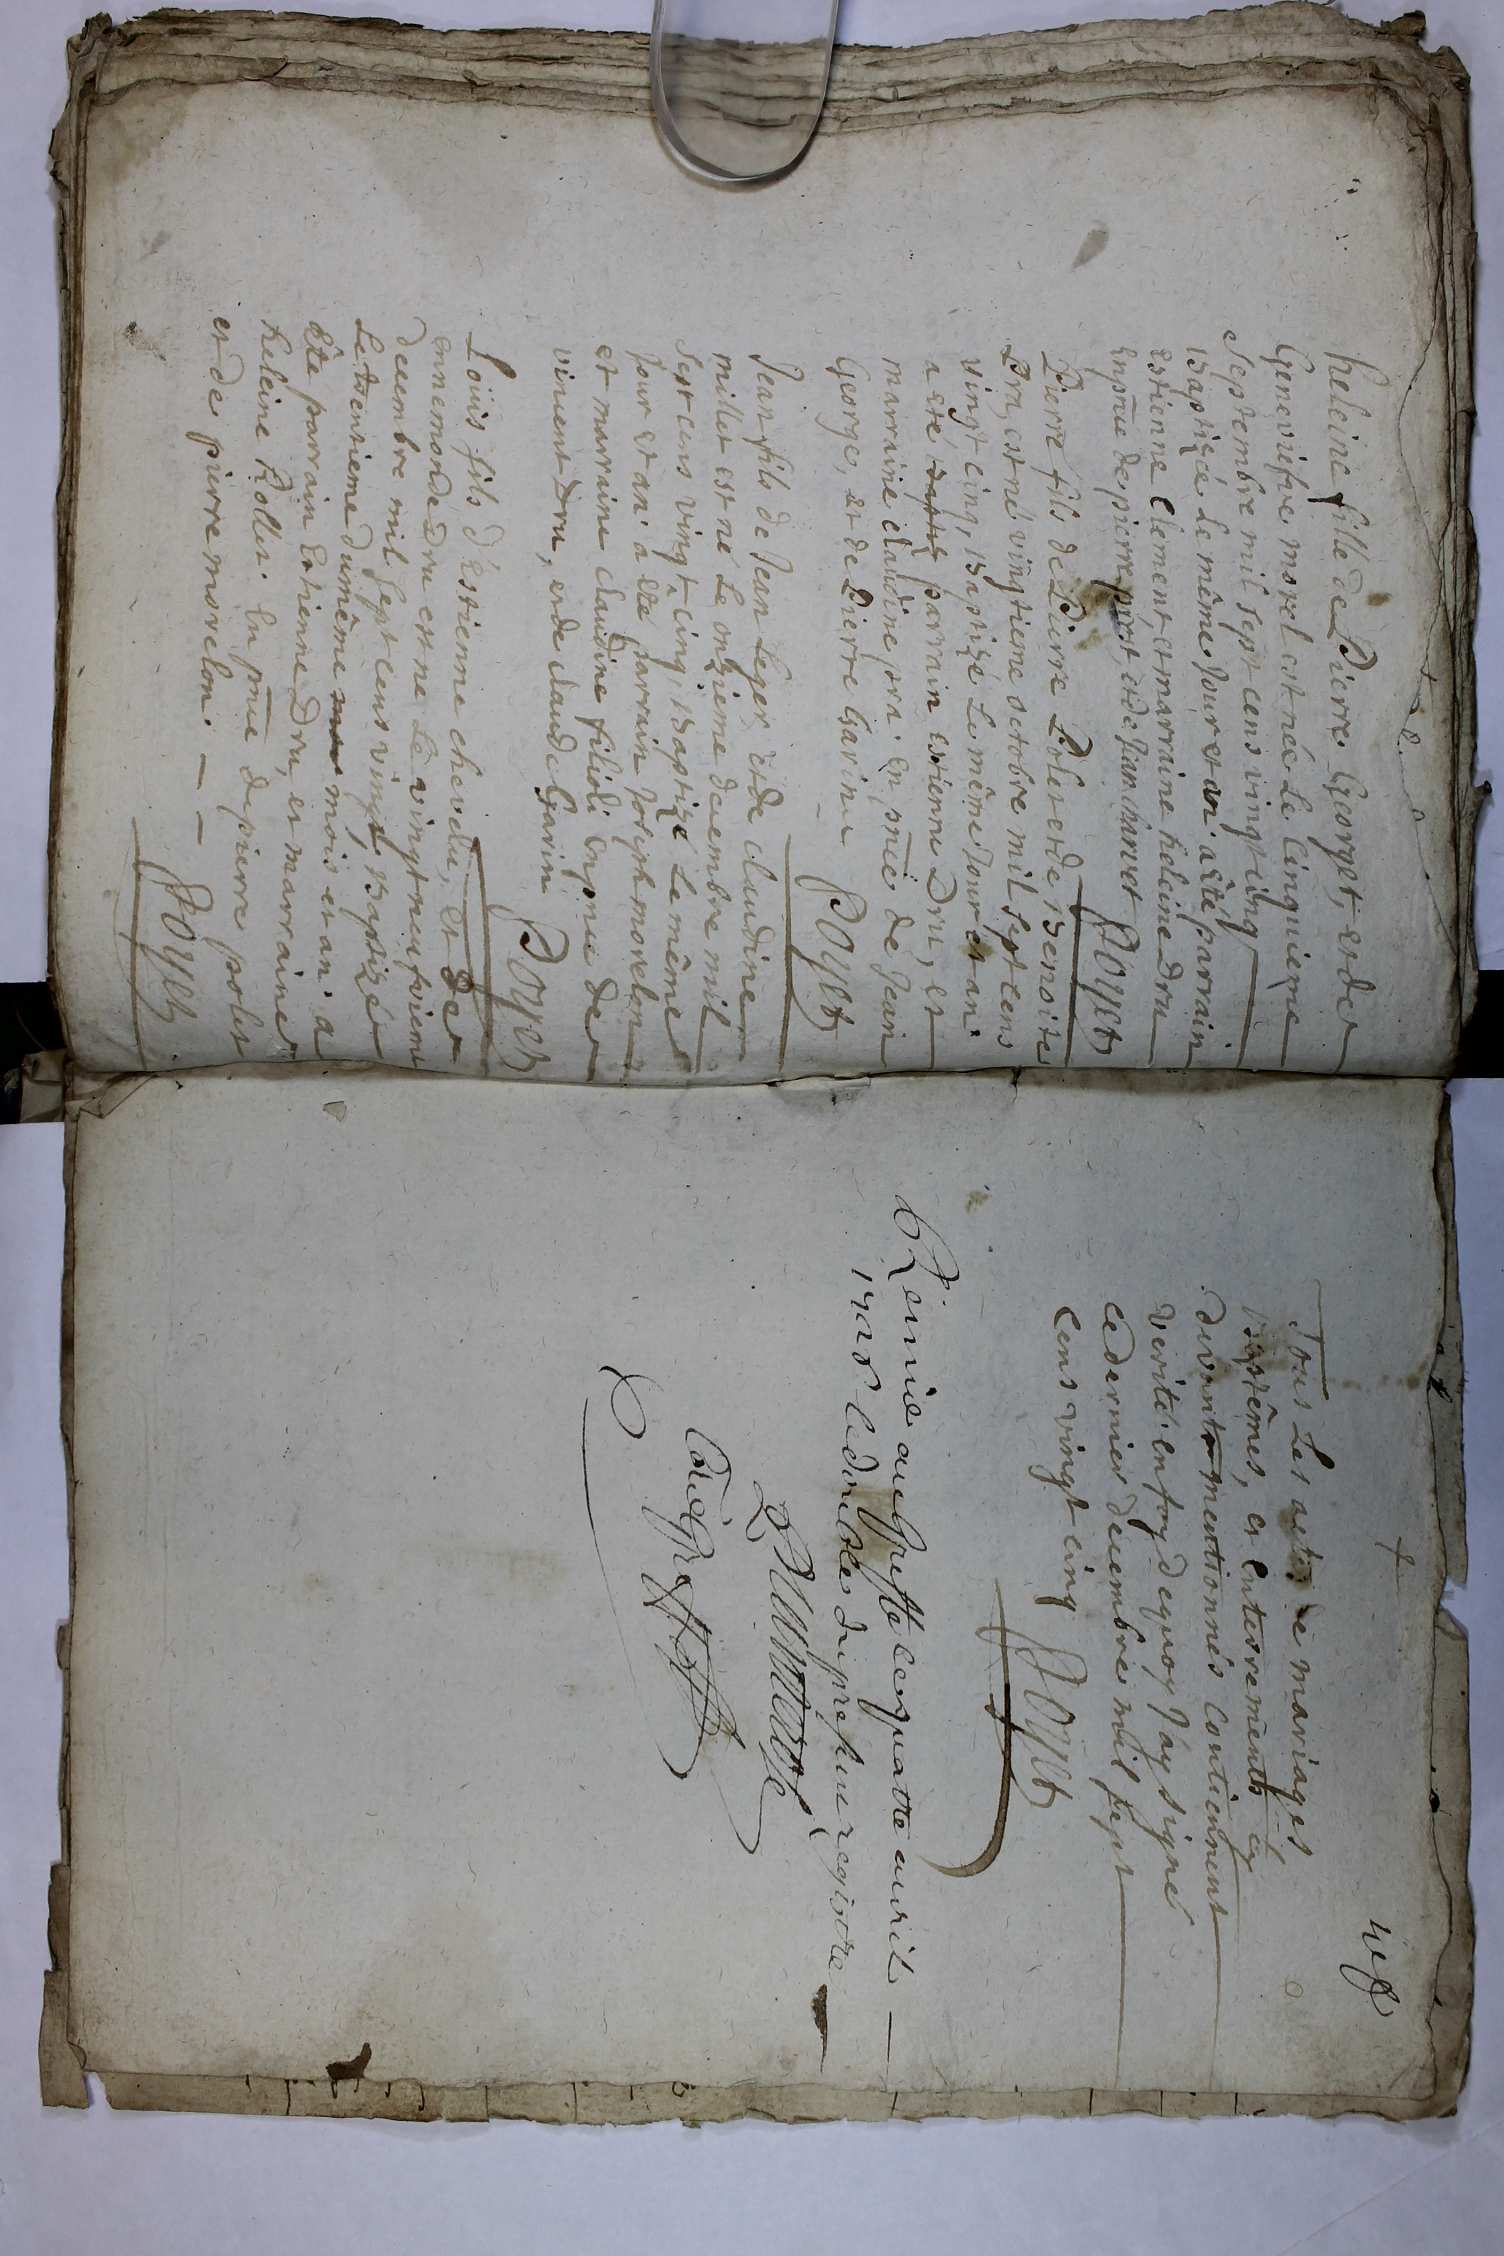 heleine fille de Pierre Gorget, et de
Genevieve morel est née Le Cinquieme
Septembre mil sept cens vingt cinq
Baptizée Le même Jour et an. a êté parrain
estienne Clement et marraine heleine Dru
en pñce de pierre et de Jean
Poyet
Pierre fils de Pierre Polet et de Benoite
Pra, est né vingtieme octobre mil sept cens
vingt cinq, Baptizé Le même Jour et an.
a êté parrain estienne Dru, et
marraine claudine pra. en pñce de Jean
George, et de Pierre Garin
Poyet
Jean fils de Jean Leger et de claudine
millet est né Le onzieme decembre mil
sept cens vingt cinq, Baptizé Le même
Jour et an. a êté parrain Joseph morelon
et marraine claudine filioli en pñce de
vincent Dru, et de claude Garin
Poyet
Loüis fils d'estienne chevelu, et de
annemonde Dru est né Le vingtneufvieme
decembre mil sept cens vingt Baptizé
Le trentieme du même mois et an. a
êté parrain Estienne Dru, et marraine
heleine Rollet. En pñce de pierre polet
et de pierre morelon.
Poyet
Tous Les actes de mariages
Baptêmes, et Enterrements cy
devant mentionnés Contiennent
verité. en foy de quoy J'ay signé
ce dernier decembre mil sept
cens vingt cinq
Poyet
Remie au Greffe ce quatre avril
1726 le double du present registre